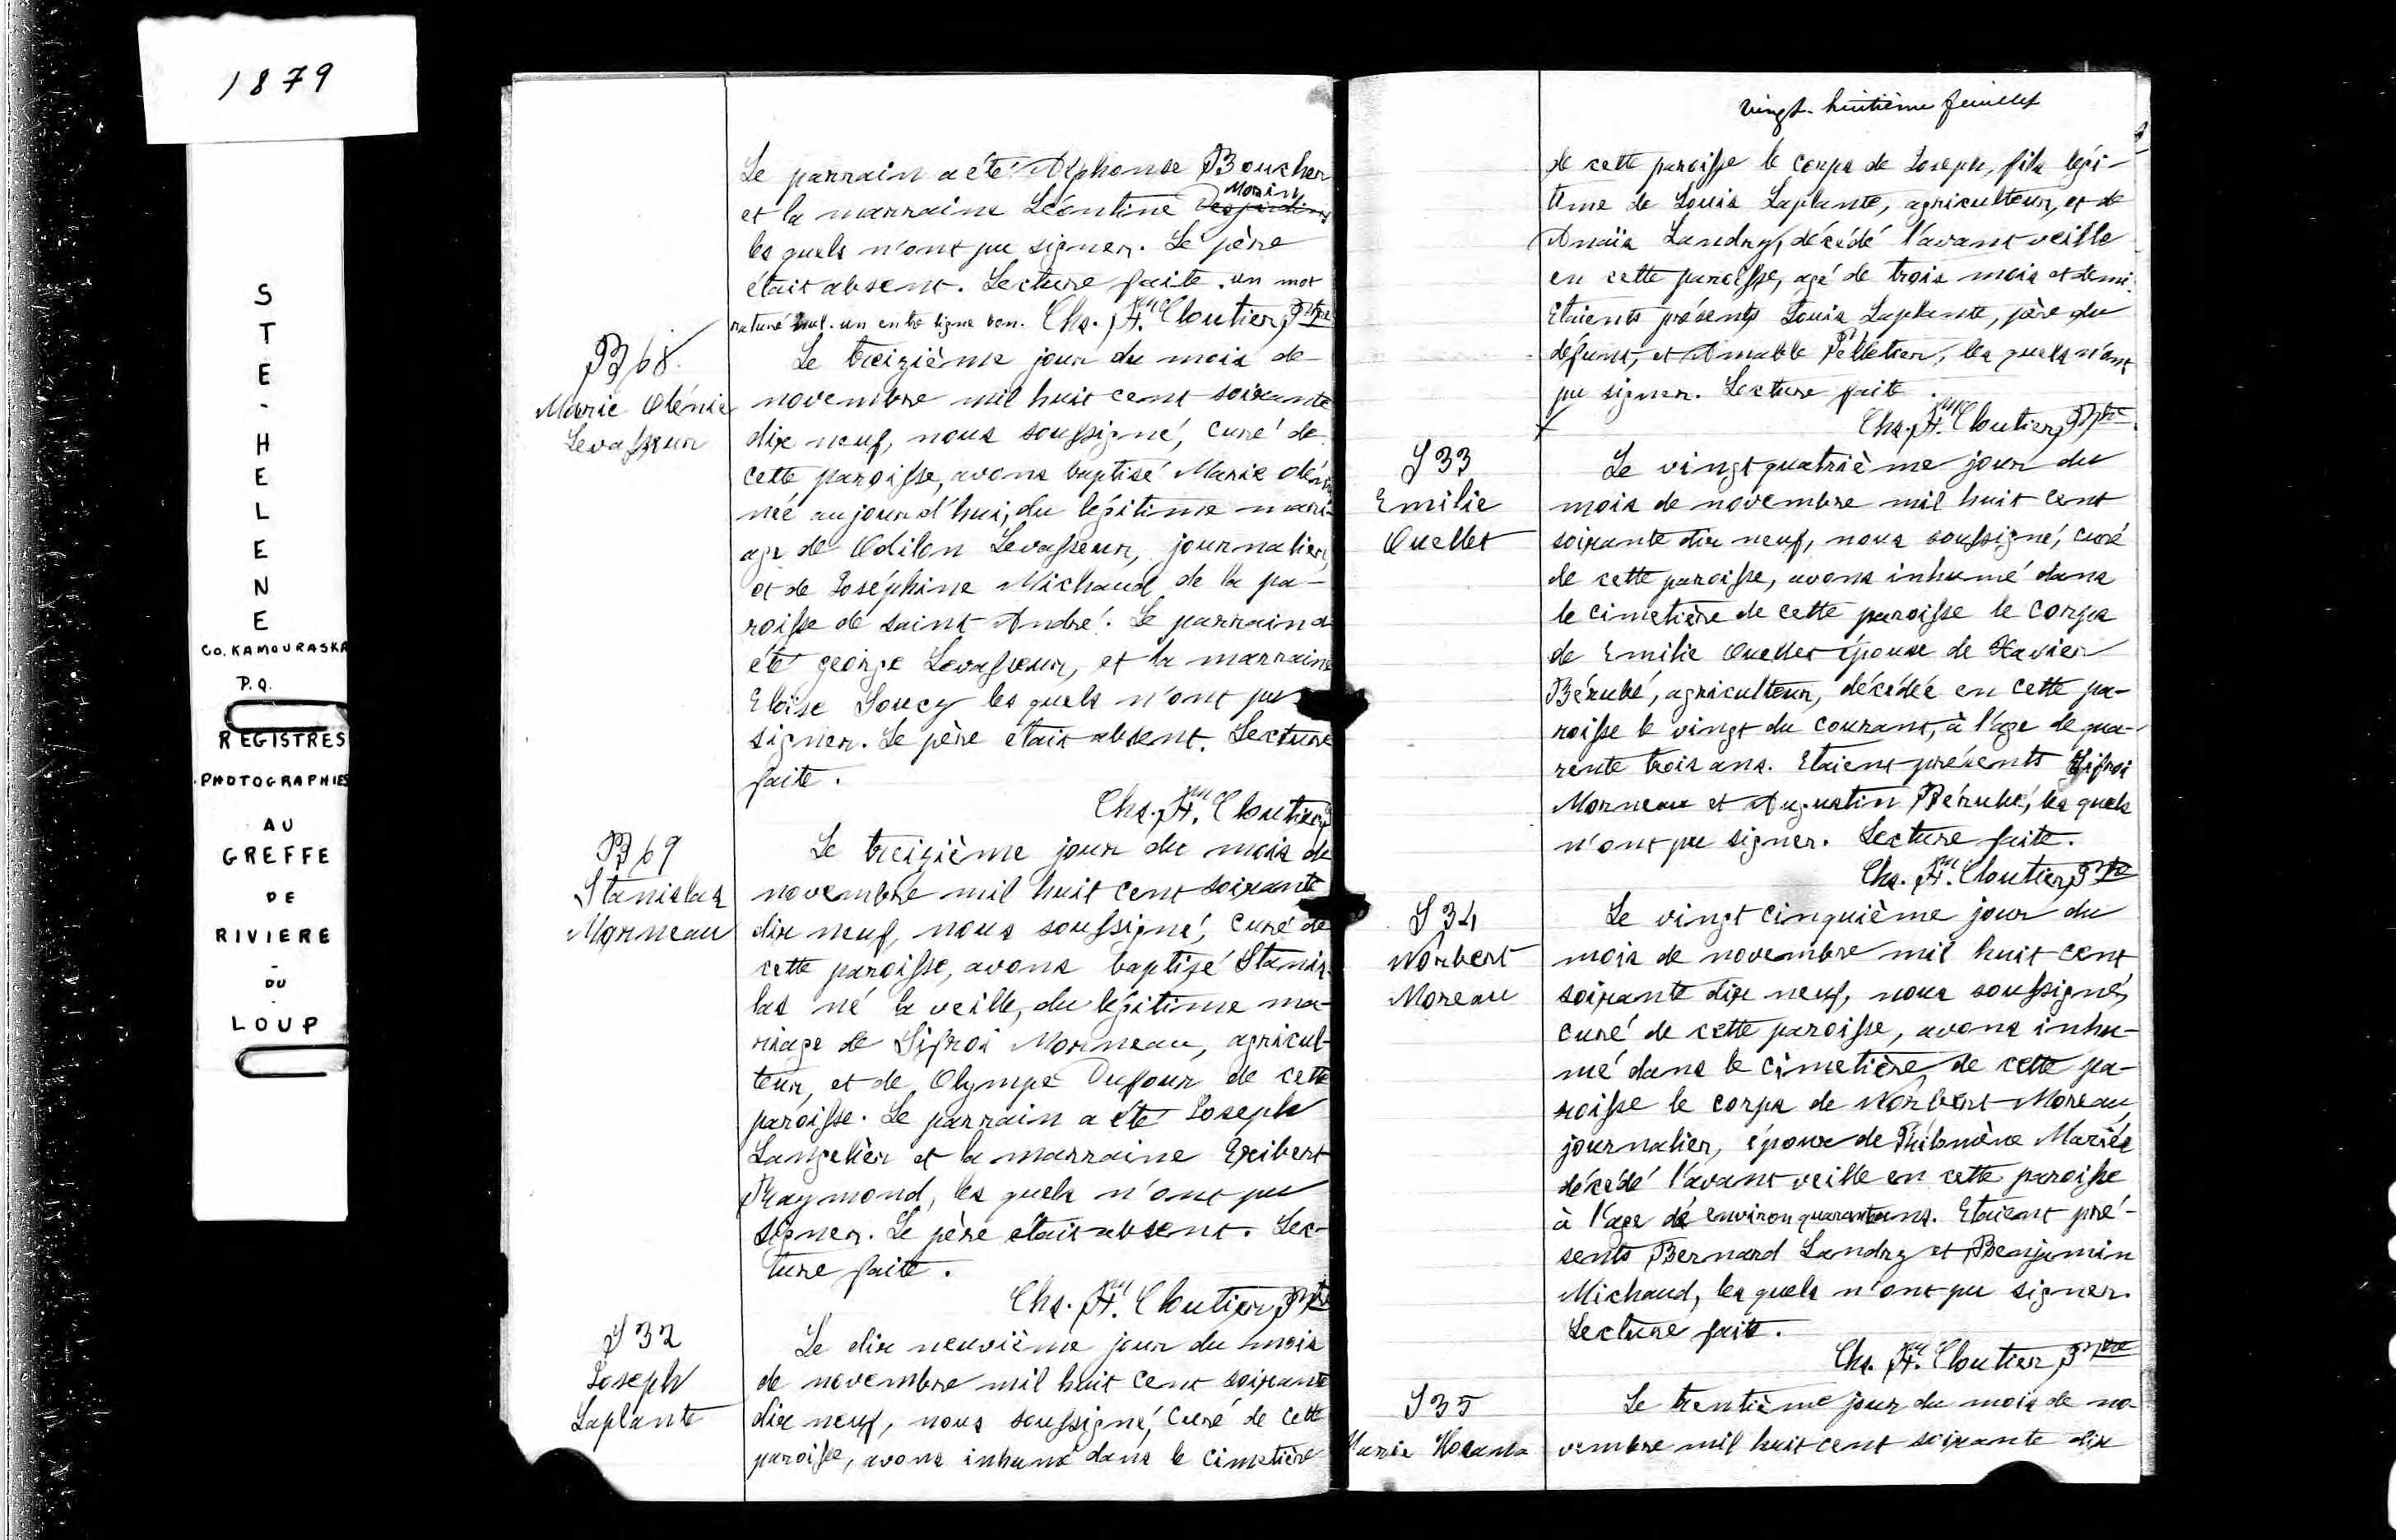 1879
STE-HELENE
CO. KAMOURASKA
P.Q.
REGISTRES
PHOTOGRAPHIES
AU
GREFFE
DE
RIVIERE
-
DU
LOUP
Le parrain a été Alphonse Boucher
Morin
et la marraine Léontine Desjardins
les quels n'ont pu signer. Le père
était absent. Lecture faite. un mot
raturé nul. un entre ligne bon. Chs. Ff. Cloutier, Ptre
B 68
Marie Olénie
Levasseur
Le treizième jour du mois de
novembre mil huit cent soixante
dix neuf, nous soussigné, curé de
cette paroisse, avons baptisé Marie Olénie
née aujourd'hui, du légitime mari-
age de Odilon Levasseur, journalier,
et de Joséphine Michaud de la pa-
roisse de saint André. Le parrain a
été george Levasseur, et la marraine
Eloise Soucy les quels n'ont pu
signer. Le père était absent. Lecture
faite.
Chs. Ff. Cloutier,
B 69
Stanislas
Morneau
Le treizième jour du mois de
novembre mil huit cent soixante
dix neuf, nous soussigné, curé de
cette paroisse, avons baptisé Stanis-
las né la veille, du légitime ma-
riage de Sifroi Morneau, agricul-
teur, et de Olympe Dufour de cette
paroisse. Le parrain a été Joseph
Langelier et la marraine Exibert
Raymond, les quels n'ont pu
signer. Le père était absent. Lec-
ture faite.
Chs. Ff. Cloutier, Ptre
S 32
Joseph
Laplante
Le dix neuvième jour du mois
de novembre mil huit cent soixante
dix neuf, nous soussigné, curé de cette
paroisse, avons inhumé dans le cimetière
vingt-huitième feuillet
de cette paroisse le corps de Joseph, fils légi-
time de Louis Laplante, agriculteur, et de
Anaïs Landry, décédé l'avant veille
en cette paroisse, agé de trois mois et demi.
Etaients présents Louis Laplante, père du
défunt, et Amable Pelletier, les quels n'ont
pu signer. Lecture faite.
Chs. Ff. Cloutier, Ptre
S 33
Emilie
Ouellet
Le vingt quatrième jour du
mois de novembre mil huit cent
soixante dix neuf, nous soussigné, curé
de cette paroisse, avons inhumé dans
le cimetière de cette paroisse le corps
de Emilie Ouellet épouse de Xavier
Bérubé, agriculteur, décédée en cette pa-
roisse le vingt du courant, à l'age de qua-
rente trois ans. Etaient présents Sifroi
Morneau et Augustin Bérubé, les quels
n'ont pu signer. Lecture faite.
Chs. Ff. Cloutier, Ptre
S 34
Norbert
Moreau
Le vingt cinquième jour du
mois de novembre mil huit cent
soixante dix neuf, nous soussigné,
curé de cette paroisse, avons inhu-
mé dans le cimetière de cette pa-
roisse le corps de Norbert Moreau,
journalier, époux de Philomène Mariés
décédé l'avant veille en cette paroisse
à l'age de environ quarante ans. Etaient pré-
sents Bernard Landry et Benjamin
Michaud, les quels n'ont pu signer.
Lecture faite.
Chs. Ff. Cloutier, Ptre
S 35
Marie
Le trentième jour du mois de no-
vembre mil huit cent soixante dix